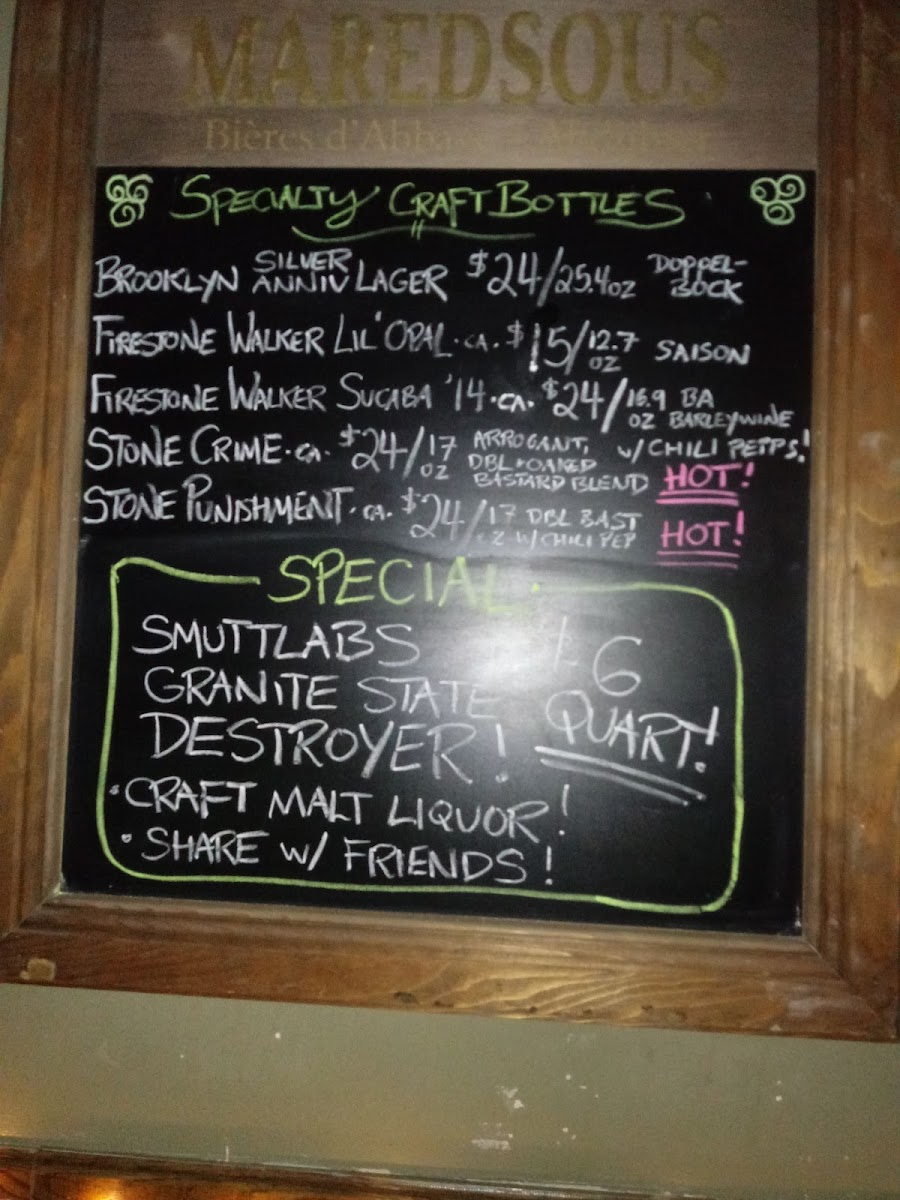 MAREDSOUS
Bières d'Abbaye
SPECIALTY CRAFT BOTTLES
BROOKLYN SILVER ANNIV LAGER $24/25.4OZ DOPPEL-BOCK
FIRESTONE WALKER LIL' OPAL · CA. $15/12.7 OZ SAISON
FIRESTONE WALKER SUCABA '14 · CA. $24/16.9 OZ BA BARLEYWINE
STONE CRIME · CA. $24/17 OZ ARROGANT, DBL + OAKED BASTARD BLEND W/ CHILI PEPPS! HOT!
STONE PUNISHMENT · CA. $24/17 OZ DBL BAST W/ CHILI PEP HOT!
SPECIAL
SMUTTLABS
GRANITE STATE
DESTROYER!
$6
QUART!
• CRAFT MALT LIQUOR!
• SHARE W/ FRIENDS!